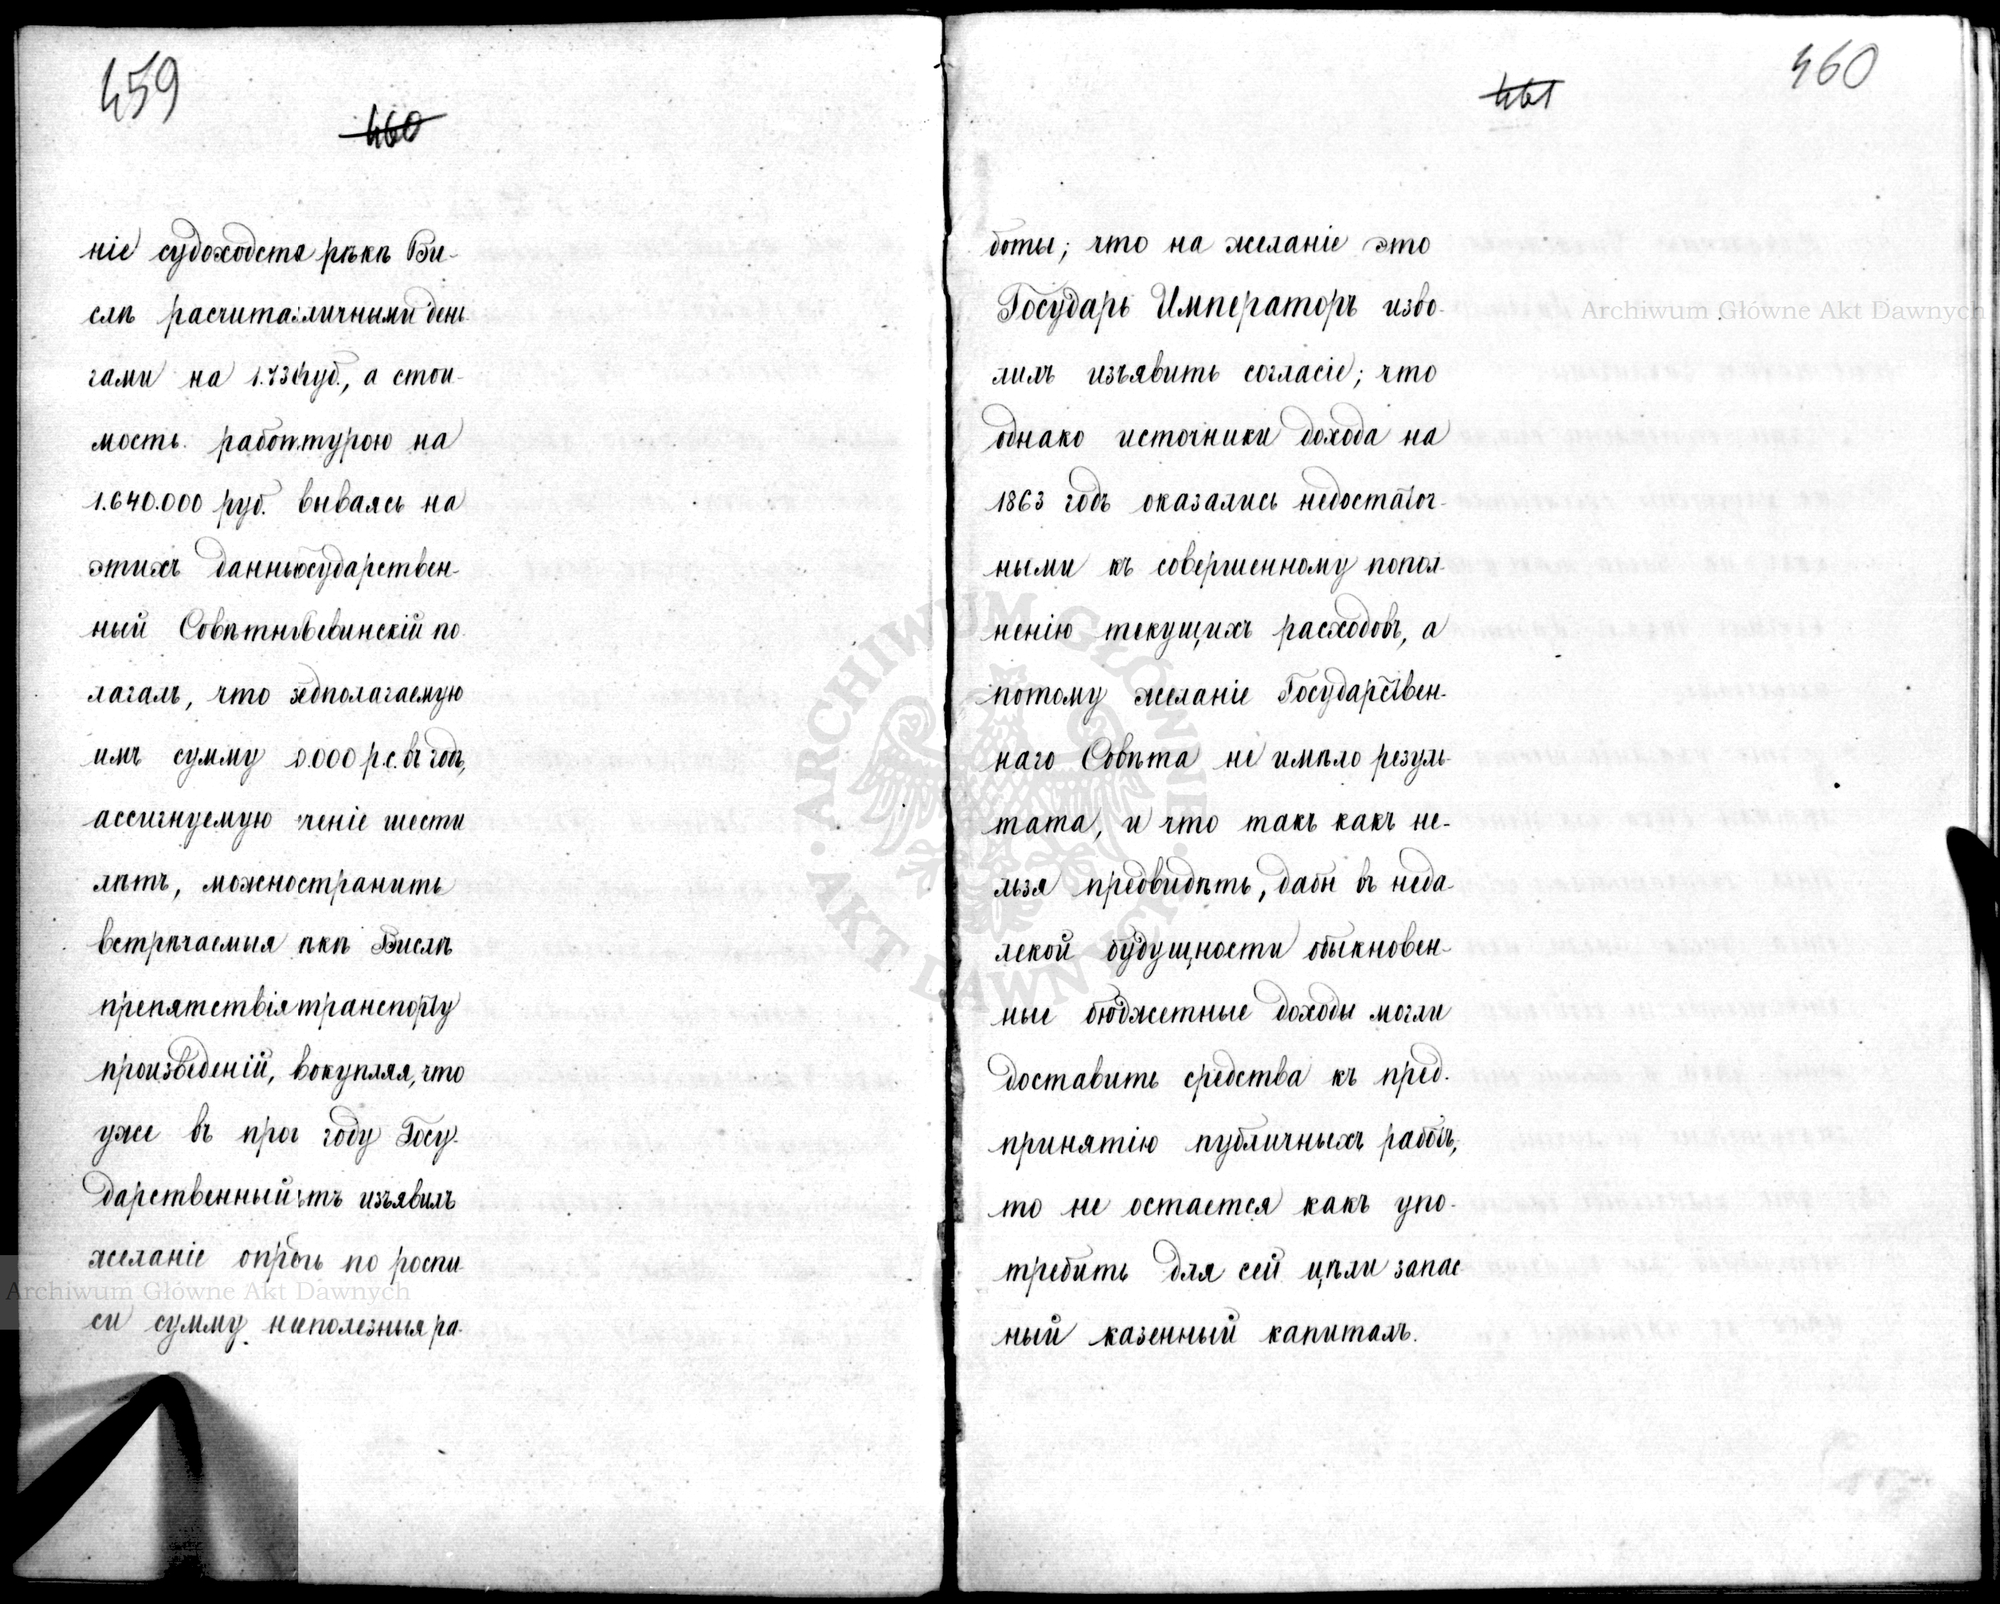 459
460
ніе судоходств рѣкѣ Ви-
слѣ расчита личными день
гами на руб., а стои-
мость. турою на
1.640.000 руб. вываясь на
этихъ данны осударствен-
ный Совѣтн евинскій по
лагалъ, что едполагаемую
имъ сумму 0.000 р.с. въ годъ,
ассигнуемую ченіе шести
лѣтъ, можно странить
встрѣчаемыя ѣкѣ Вислѣ
препятствія транспорту
произведеній, вокупляя, что
уже въ про году Госу-
дарственный ѣтъ изъявилъ
желаніе опр ть по роспи
си сумму на полезныя ра-
460
461
боты; что на желаніе это
Государь Императоръ изво-
лилъ изъявить согласіе; что
однако источники дохода на
1863 годъ оказались недостаточ-
ными къ совершенному попол-
ненію текущихъ расходовъ, а
потому желаніе Государствен-
наго Совѣта не имѣло резуль-
тата, и что такъ какъ не-
льзя предвидѣть, дабы въ неда-
лекой будущности обыкновен-
ные бюджетные доходы могли
доставить средства къ пред-
принятію публичныхъ работъ,
то не остается какъ упо-
требить для сей цѣли запас
ный казенный капиталъ.
Archiwum Główne Akt Dawnych
Archiwum Główne Akt Dawnych
ARCHIWUM GŁÓWNE
AKT DAWNYCH